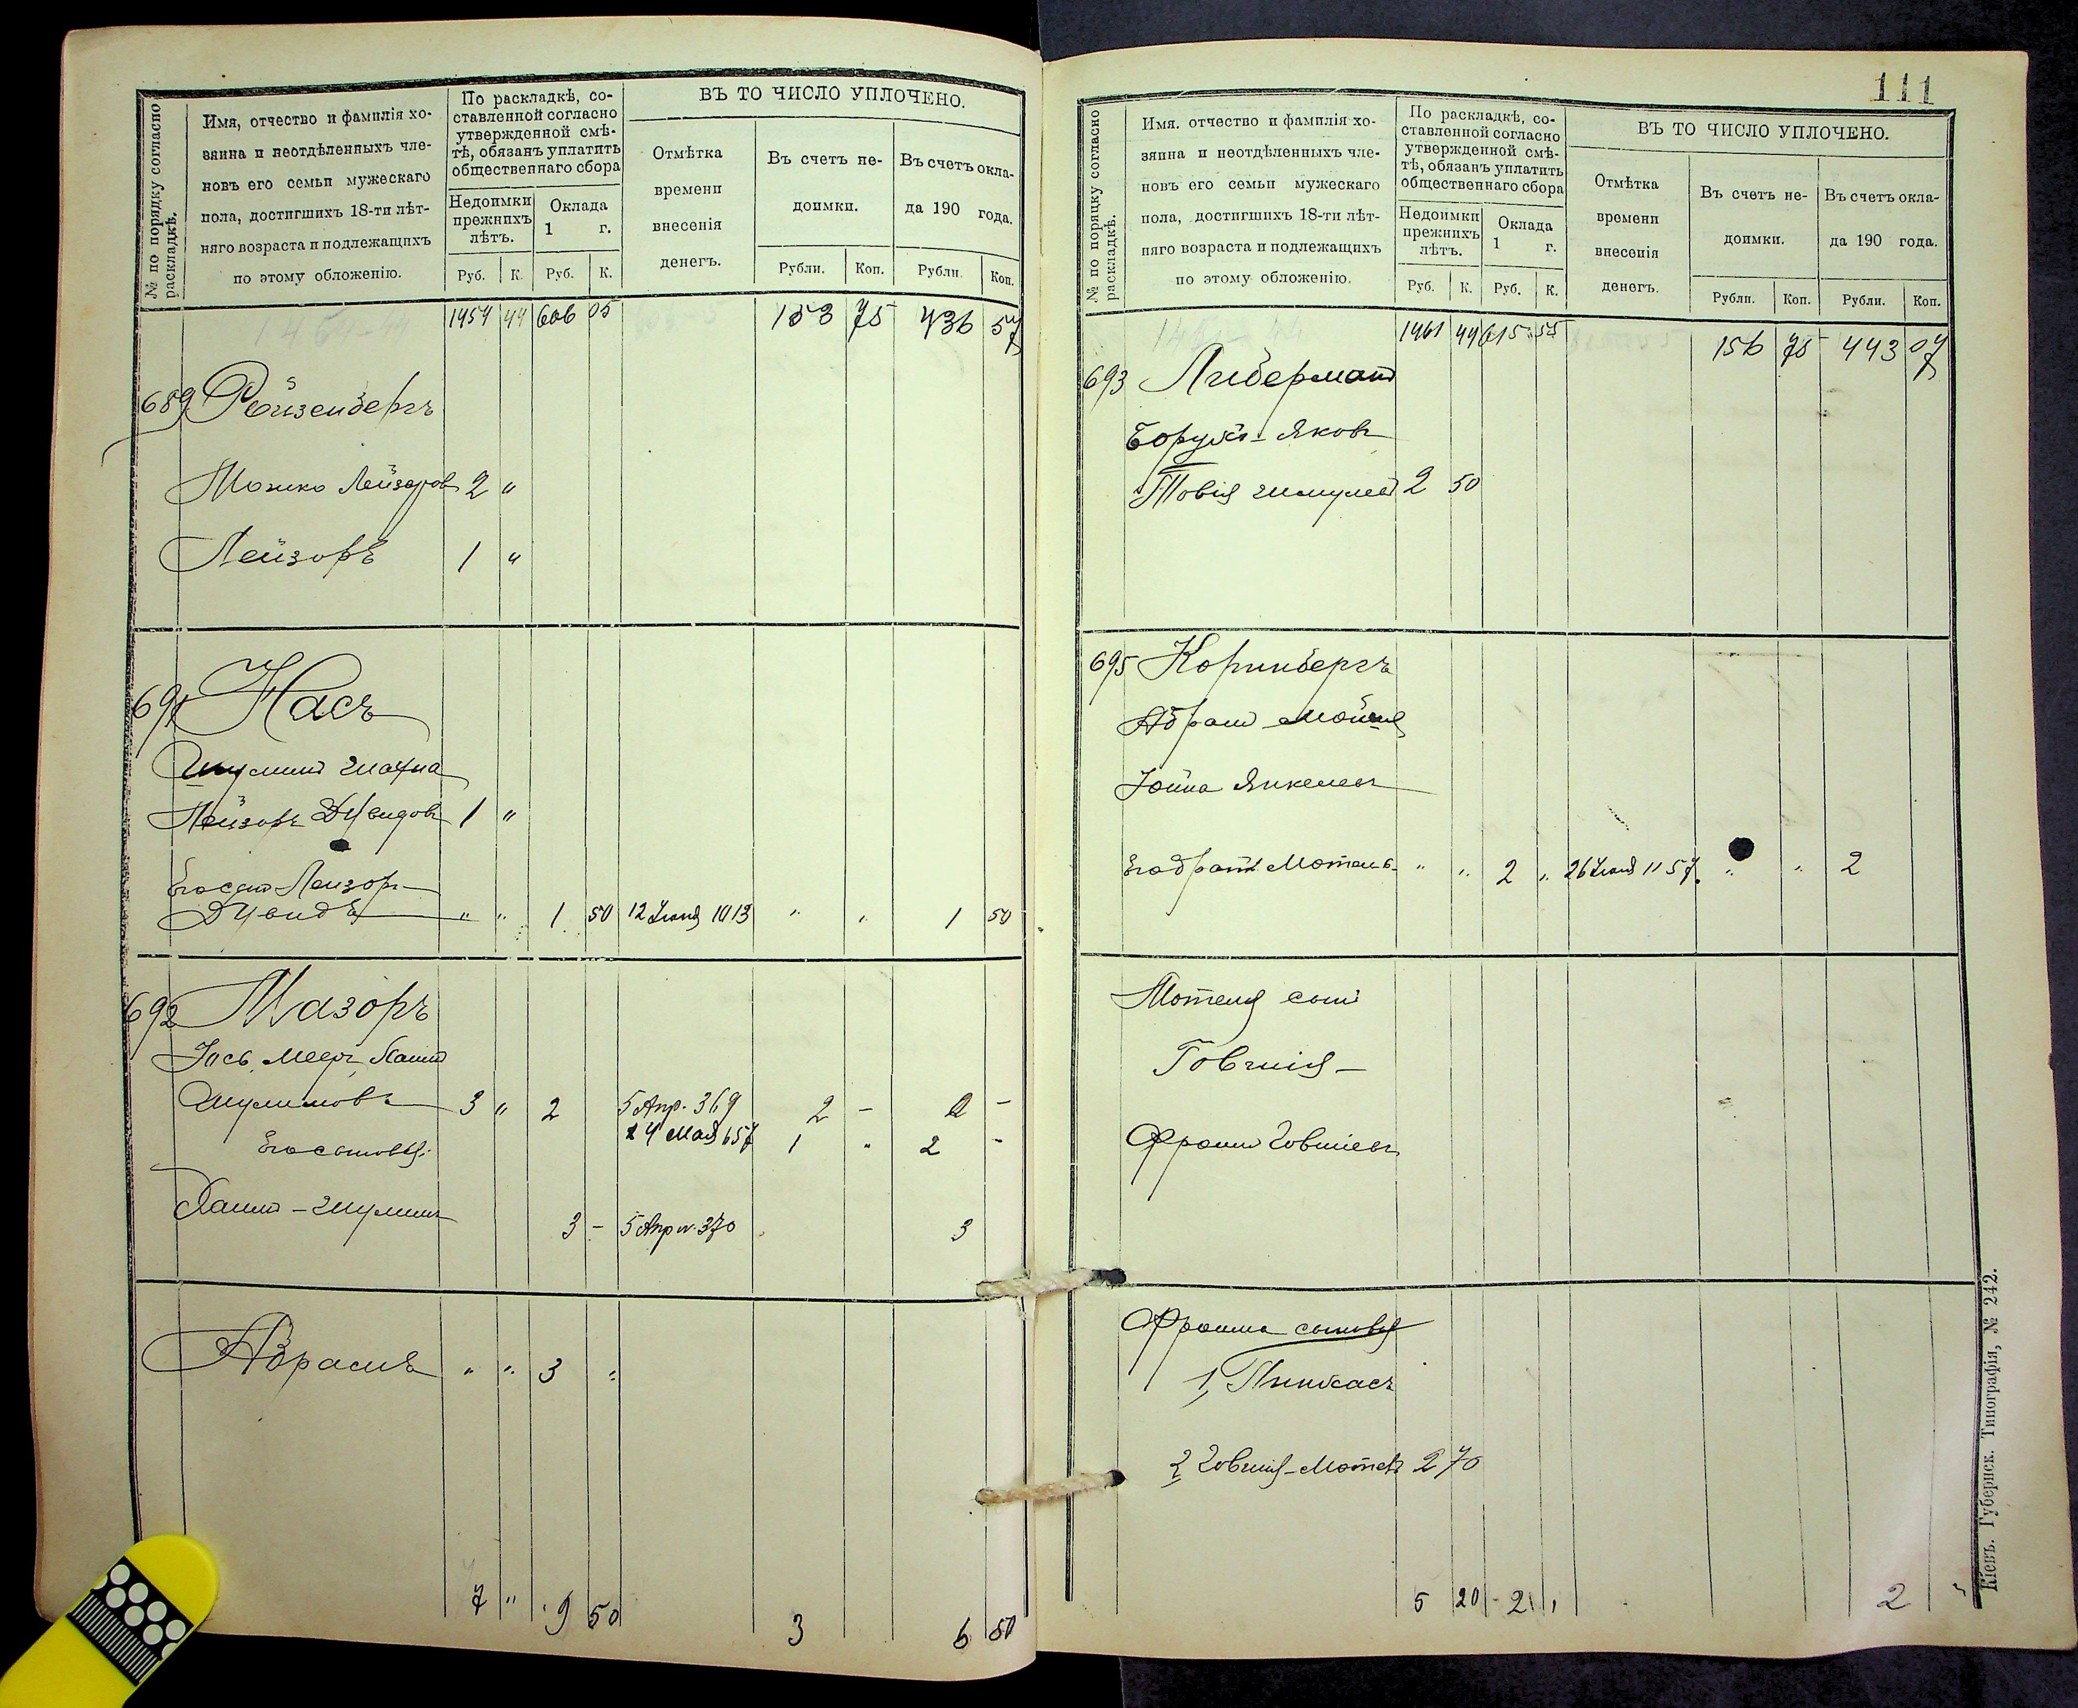 № по порядку согласно раскладкѣ.
Имя, отчество и фамилія хо-
зяина и неотдѣленныхъ чле-
новъ его семьи мужескаго
пола, достигшихъ 18-ти лѣт-
няго возраста и подлежащихъ
по этому обложенію.
По раскладкѣ, со-
ставленной согласно
утвержденной смѣ-
тѣ, обязанъ уплатить
общественнаго сбора
Недоимки
прежнихъ
лѣтъ.
Оклада
1 г.
Руб. К. Руб. К.
ВЪ ТО ЧИСЛО УПЛОЧЕНО.
Отмѣтка
времени
внесенія
денегъ.
Въ счетъ не-
доимки.
Въ счетъ окла-
да 190 года.
Рубли. Коп. Рубли. Коп.
1454 44 606 05 153 75 436 57
689 Ройзенбергъ
Мошко Лейзоровъ 2 "
Лейзоръ 1 "
691 Насъ
Шулимъ Шахна
Лейзоръ Дувидовъ 1 "
Его сынъ Лейзоръ-
Дувидъ " " 1 50 12 Іюня 1013 " " 1 50
692 Мазоръ
Іось, Мееръ, Хаимъ
Шулимовъ 3 " 2 5 Апр. 369 2 - 2 -
24 Мая 657 1 " 2 -
Его сыновья:
Хаимъ-Шулимъ
3 - 5 Апр. 370 3
Абрамъ " " 3 "
7 " 9 50 3 6 50
111
№ по порядку согласно раскладкѣ.
Имя. отчество и фамилія хо-
зяина и неотдѣленныхъ чле-
новъ его семьи мужескаго
пола, достигшихъ 18-ти лѣт-
няго возраста и подлежащихъ
по этому обложенію.
По раскладкѣ, со-
ставленной согласно
утвержденной смѣ-
тѣ, обязанъ уплатить
общественнаго сбора
Недоимки
прежнихъ
лѣтъ.
Оклада
1 г.
Руб. К. Руб. К.
ВЪ ТО ЧИСЛО УПЛОЧЕНО.
Отмѣтка
времени
внесенія
денегъ.
Въ счетъ не-
доимки.
Въ счетъ окла-
да 190 года.
Рубли. Коп. Рубли. Коп.
1461 44 615 55 156 75 443 07
693 Либерманъ
Борухъ-Яковъ
Товія 2 50
695 Коринбергъ
Абрамъ Мойше
Іойна Янкелевъ
Его братъ Мотель " " 2 " 26 Іюня 1157 " " 2
Мотеля сынъ
Говшія-
Фроимъ Говшіевъ
Фроима сыновья
1, Пинхасъ
2 Говшія-Мотель 2 70
5 20 2 " 2 "
Кіевъ. Губернск. Типографія, № 242.